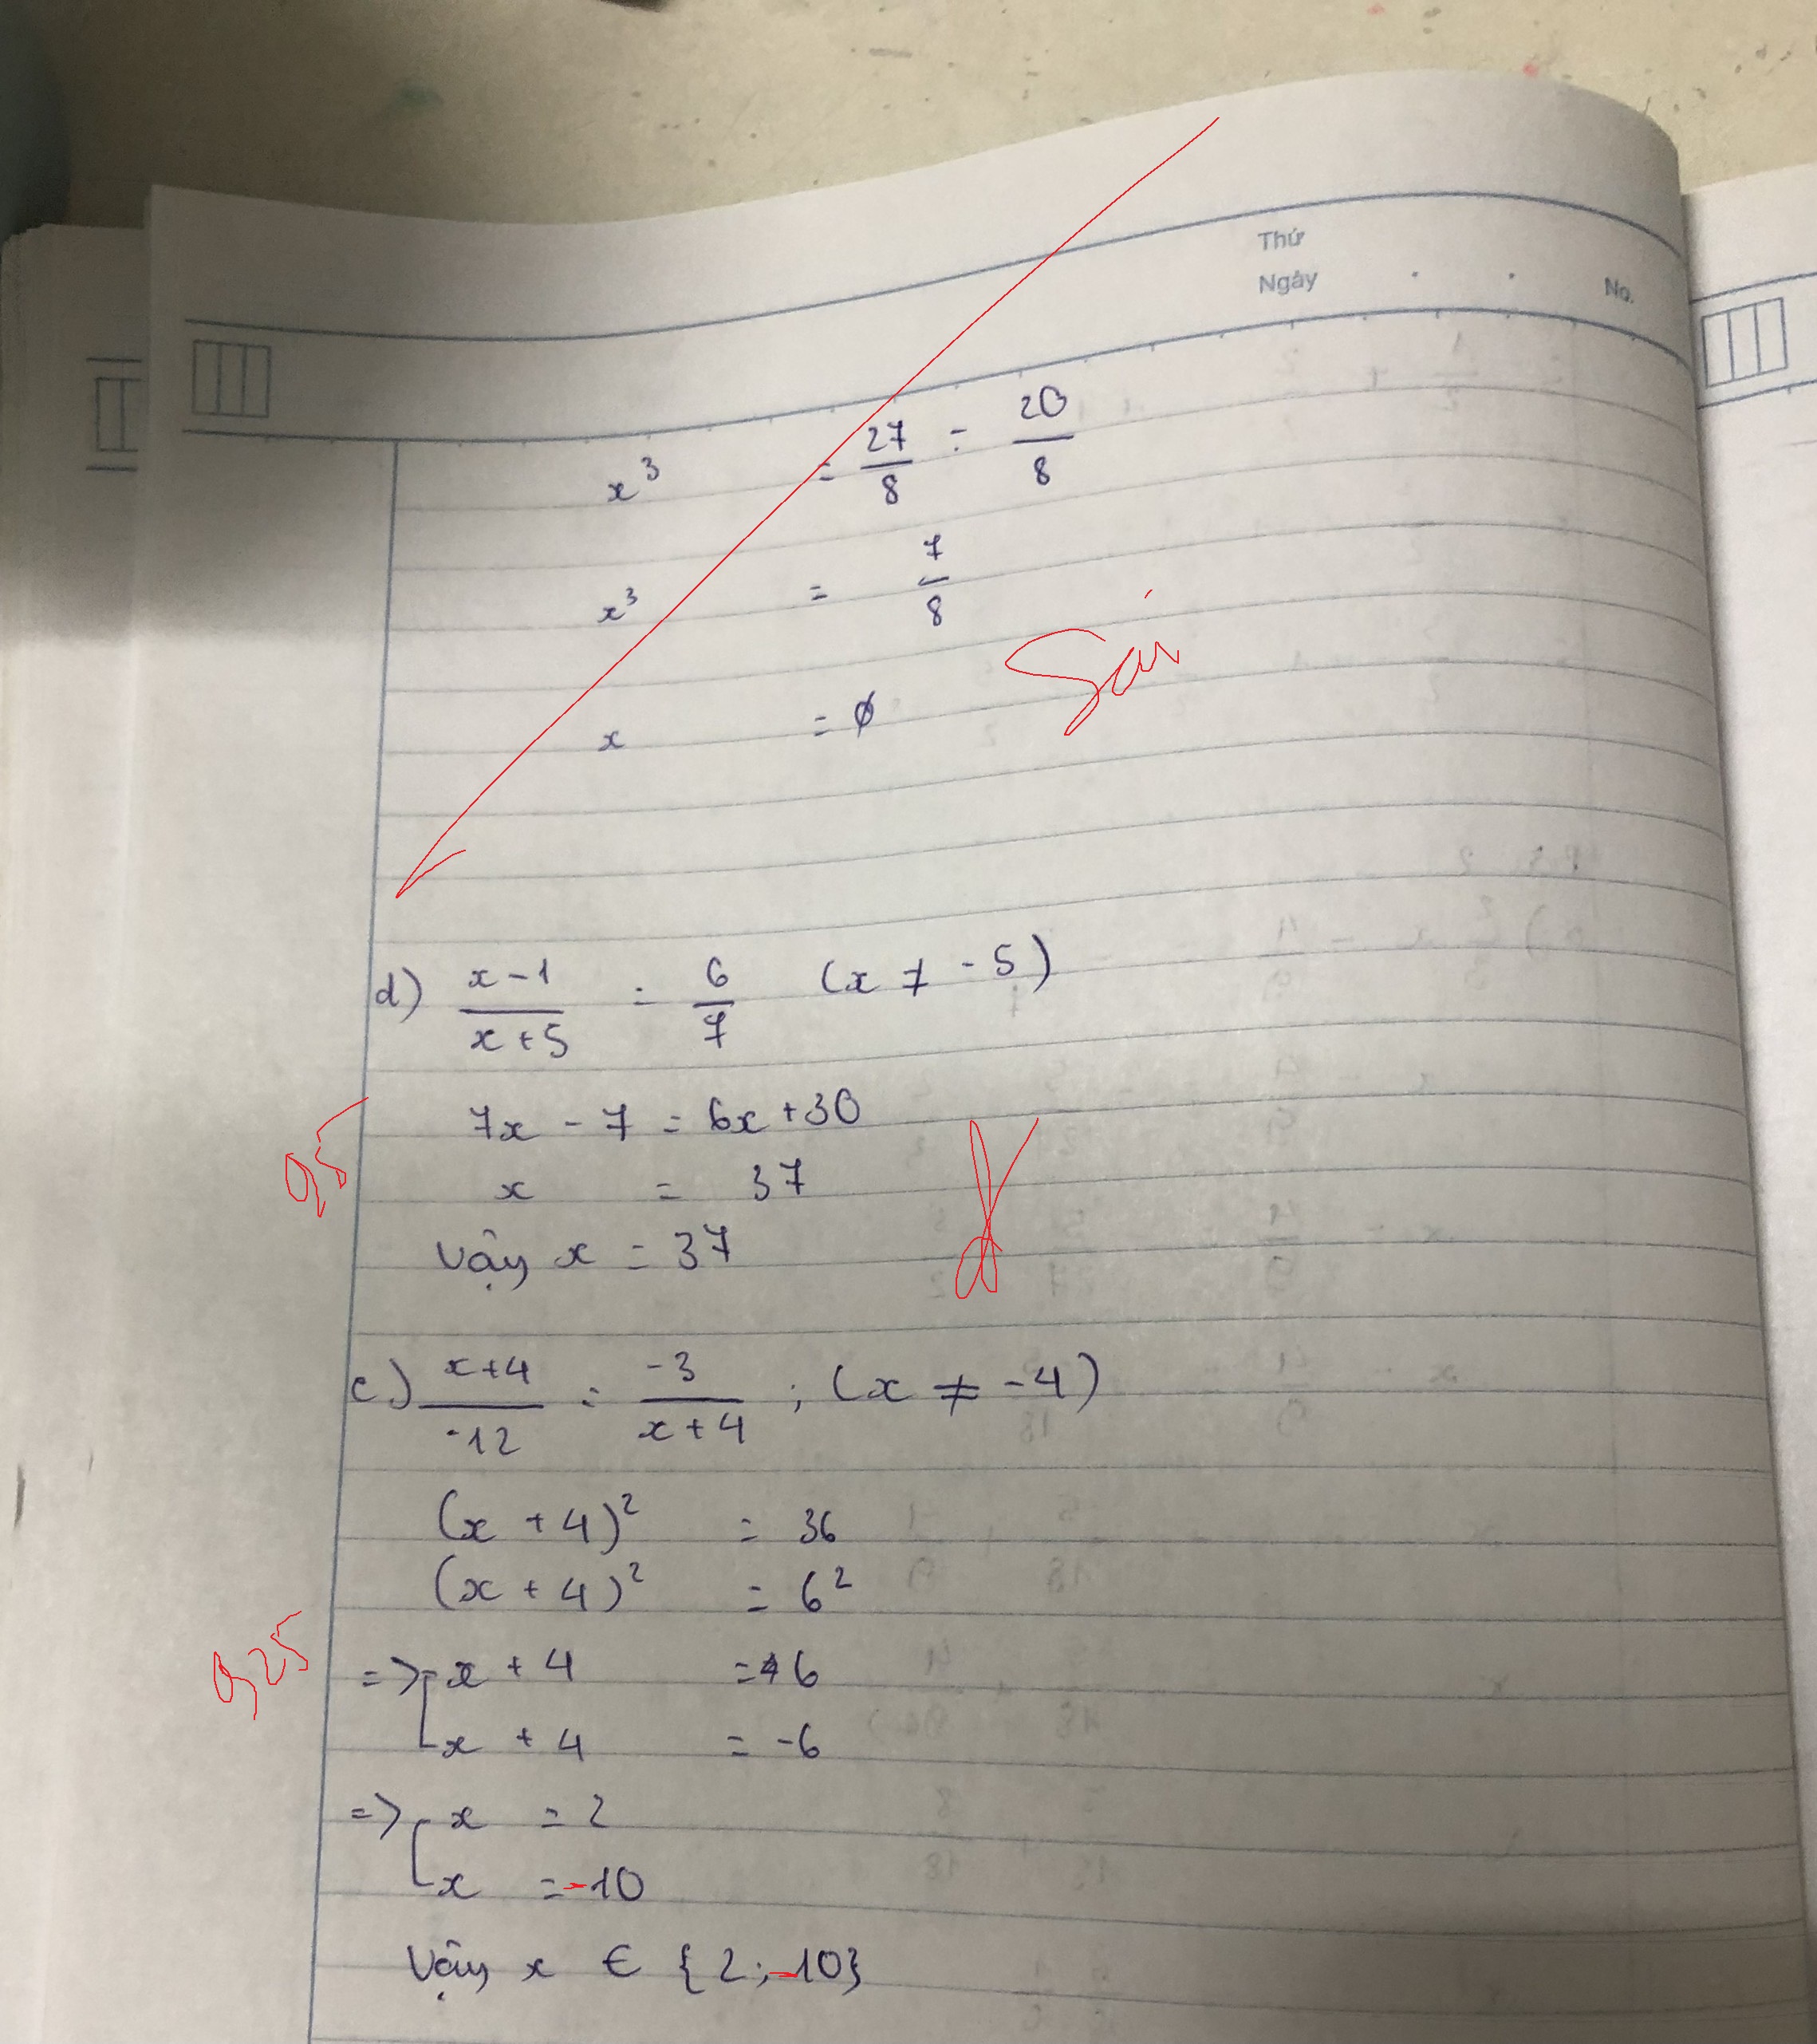 Thứ
Ngày
No.
x³ = 27/8 - 20/8
x³ = 7/8
x = ∅
Sai
d) (x-1)/(x+5) = 6/7 (x ≠ -5)
7x - 7 = 6x + 30
0,5
x = 37
Vậy x = 37
đ
e) (x+4)/-12 = -3/(x+4) ; (x ≠ -4)
(x + 4)² = 36
(x + 4)² = 6²
0,25
=> [x + 4 = 6
x + 4 = -6
=> [x = 2
x = -10
Vậy x ∈ {2; -10}